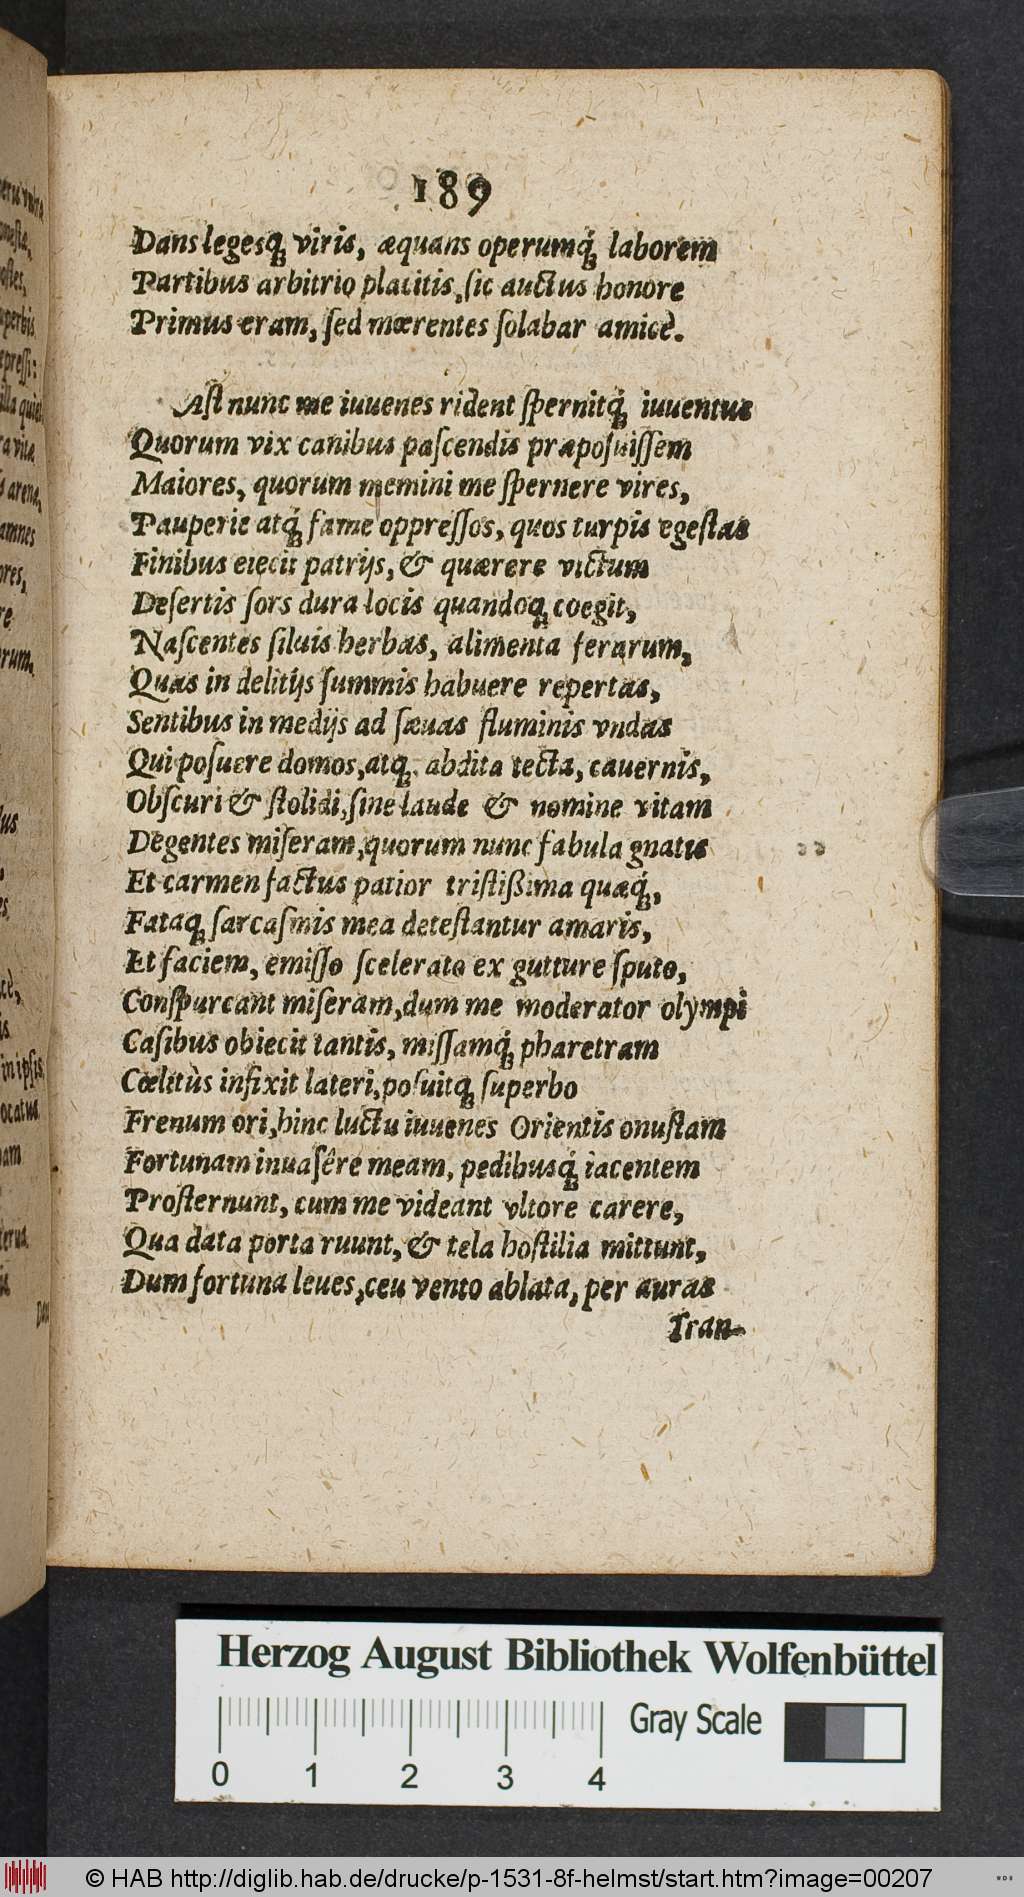 189
Dans legesq́ꝫ viris, æquans operumq́ꝫ laborem
Partibus arbitrio placitis, ſic auctus honore
Primus eram, ſed mœrentes ſolabar amicè.
Aſt nunc me iuuenes rident ſpernitq́ꝫ iuuentus
Quorum vix canibus paſcendis præpoſuiſſem
Maiores, quorum memini me ſpernere vires,
Pauperie atq́ꝫ fame oppreſſos, quos turpis egeſtas
Finibus eiecit patrijs, & quærere victum
Deſertis ſors dura locis quandoqꝫ coegit,
Naſcentes ſiluis herbas, alimenta ferarum,
Quas in delitijs ſummis habuere repertas,
Sentibus in medijs ad ſæuas fluminis vndas
Qui poſuere domos, atqꝫ abdita tecta, cauernis,
Obſcuri & ſtolidi, ſine laude & nomine vitam
Degentes miſeram, quorum nunc fabula gnatis
Et carmen factus patior triſtißima quæq́ꝫ,
Fataqꝫ ſarcaſmis mea deteſtantur amaris,
Et faciem, emiſſo ſcelerato ex gutture ſputo,
Conſpurcant miſeram, dum me moderator olympi
Caſibus obiecit tantis, miſſamq́ꝫ pharetram
Cœlitùs infixit lateri, poſuitqꝫ ſuperbo
Frenum ori, hinc luctu iuuenes Orientis onuſtam
Fortunam inuaſêre meam, pedibusq́ꝫ iacentem
Proſternunt, cum me videant vltore carere,
Qua data porta ruunt, & tela hoſtilia mittunt,
Dum fortuna leues, ceu vento ablata, per auras
Tran-
Herzog August Bibliothek Wolfenbüttel
Gray Scale
0 1 2 3 4
© HAB http://diglib.hab.de/drucke/p-1531-8f-helmst/start.htm?image=00207